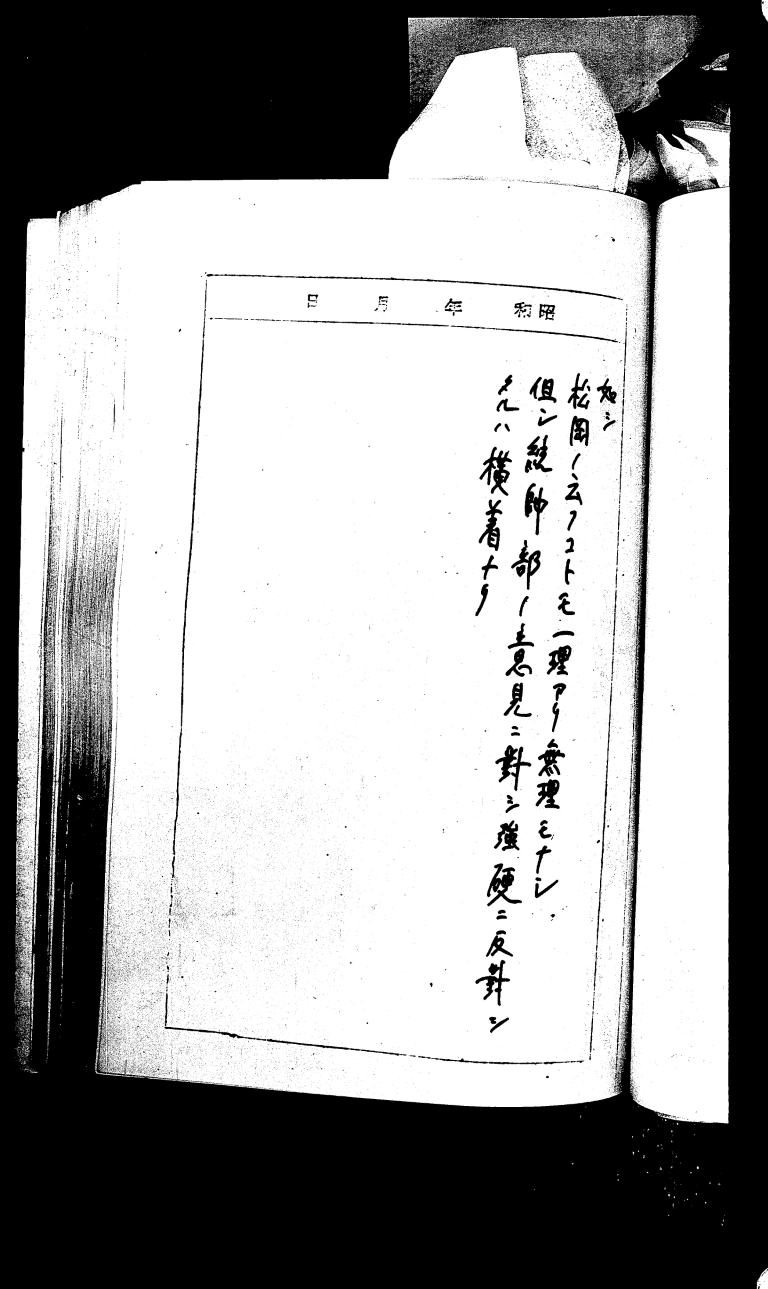 昭和　年　月　日
如シ
松岡ノ云フコトモ一理アリ無理モナシ
但シ統帥部ノ意見ニ對シ強硬ニ反對シ
タルハ横着ナリ